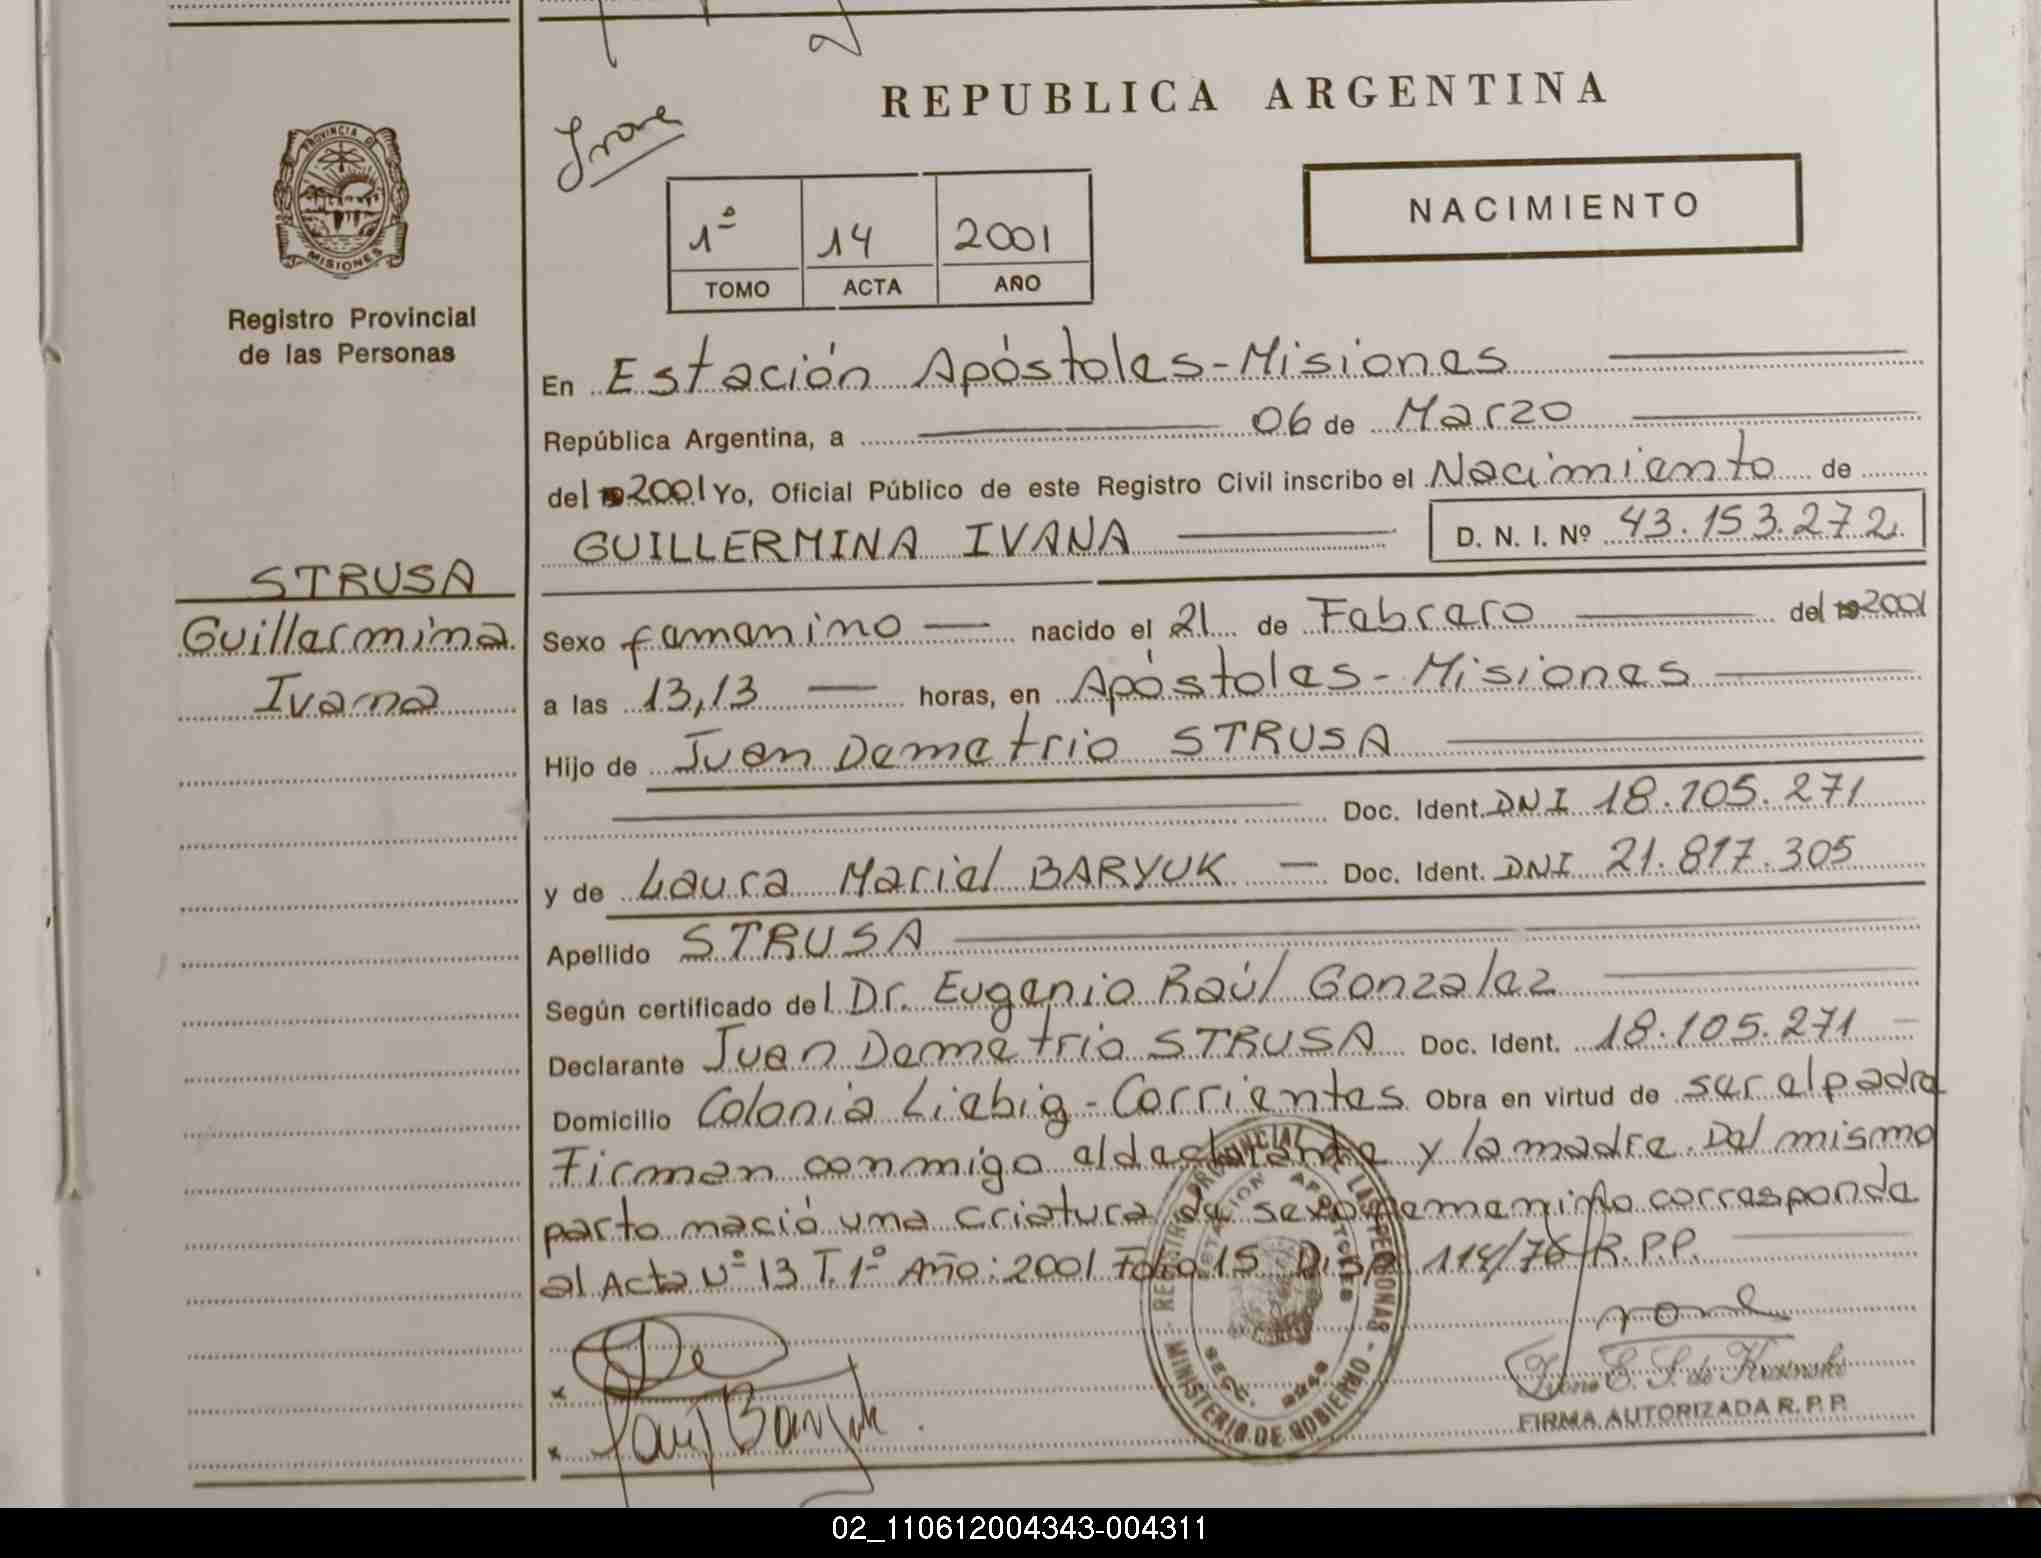 REPUBLICA ARGENTINA
Irone
PROVINCIA DE
MISIONES
Registro Provincial
de las Personas
1º 14 2001
TOMO ACTA AÑO
NACIMIENTO
En Estación Apóstoles-Misiones
República Argentina, a 06 de Marzo
del 192001 Yo, Oficial Público de este Registro Civil inscribo el Nacimiento de
GUILLERMINA IVANA D. N. I. Nº 43.153.272
STRUSA
Guillermina
Ivana
Sexo femenino nacido el 21 de Febrero del 192001
a las 13,13 horas, en Apóstoles-Misiones
Hijo de Juan Demetrio STRUSA
Doc. Ident. DNI 18.105.271
y de Laura Mariel BARYUK Doc. Ident. DNI 21.817.305
Apellido STRUSA
Según certificado del Dr. Eugenio Raúl Gonzalez
Declarante Juan Demetrio STRUSA Doc. Ident. 18.105.271
Domicilio Colonia Liebig-Corrientes Obra en virtud de ser el padre
Firman conmigo el declarante y la madre. Del mismo
parto nació una criatura de sexo femenino corresponde
al Acta Nº 13 T.1º Año:2001 Folio 15 Disp. 114/76 R.P.P.
REGISTRO PROVINCIAL DE LAS PERSONAS - MINISTERIO DE GOBIERNO -
ESTACION APOSTOLES
FIRMA AUTORIZADA R. P. P.
02_110612004343-004311